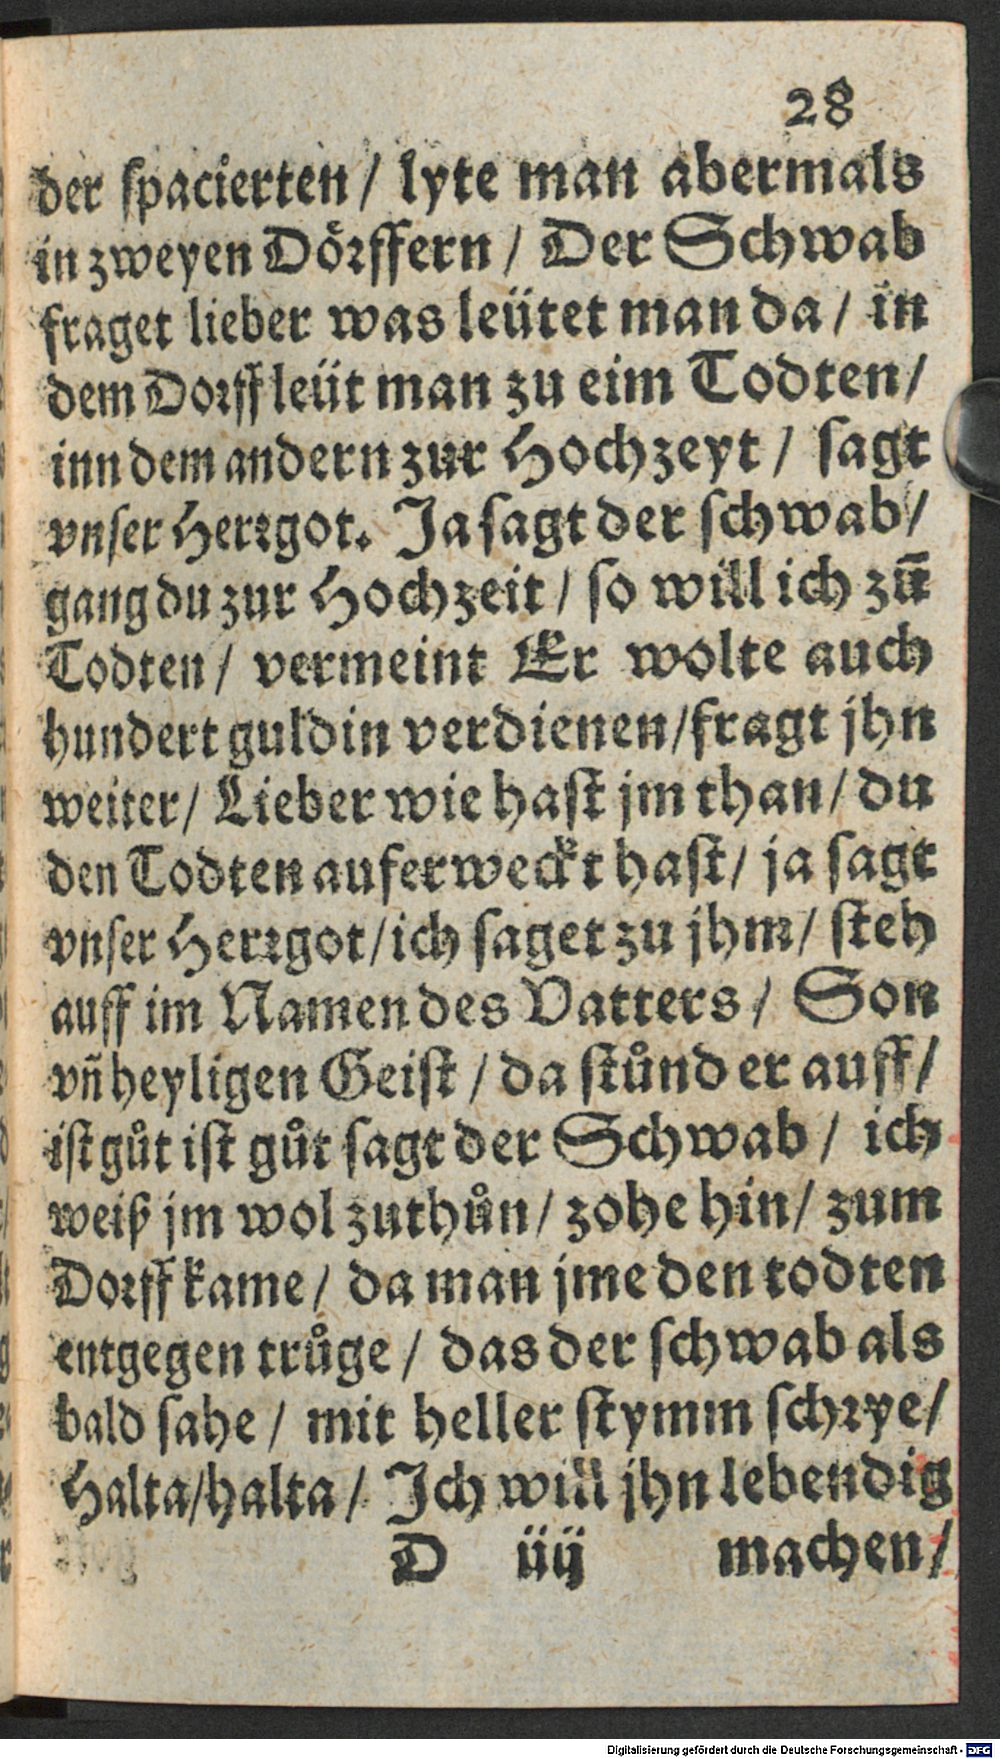 28
der spacierten/ lyte man abermals
in zweyen Dörffern/ Der Schwab
fraget lieber was leütet man da/ in
dem Dorff leüt man zu eim Todten/
inn dem andern zur Hochzeyt/ sagt
vnser Herꝛgot. Ja sagt der schwab/
gang du zur Hochzeit/ so will ich zū
Todten/ vermeint Er wolte auch
hundert guldin verdienen/fragt jhn
weiter/ Lieber wie hast jm than/ du
den Todten auferweckt hast/ ja sagt
vnser Herꝛgot/ich saget zu jhm/ steh
auff im Namen des Vatters/ Son
vn̄ heyligen Geist/ da stůnd er auff/
ist gůt ist gůt sagt der Schwab/ ich
weiß jm wol zuthůn/ zohe hin/ zum
Dorff kame/ da man jme den todten
entgegen trůge/ das der schwab als
bald sahe/ mit heller stymm schrye/
Halta/halta/ Ich will jhn lebendig
D iiij machen/
Digitalisierung gefördert durch die Deutsche Forschungsgemeinschaft - DFG